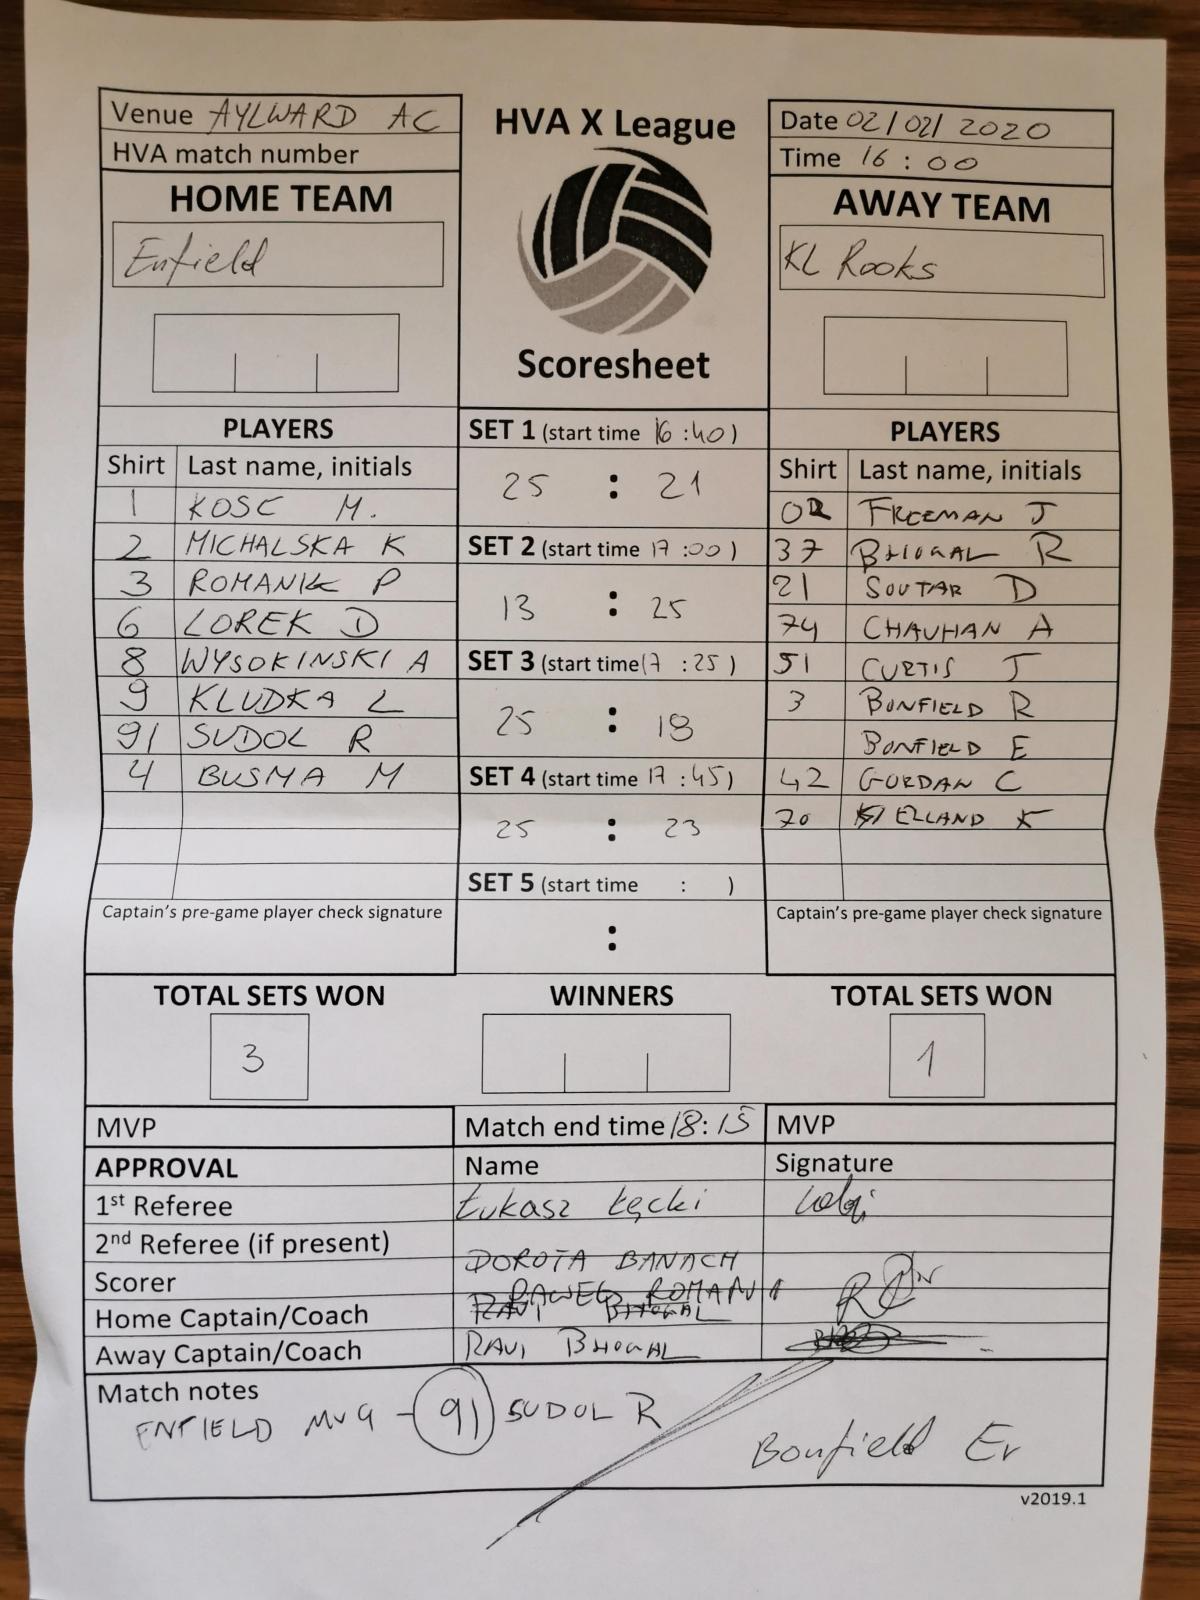 Venue AYLWARD AC
HVA match number
HVA X League
Scoresheet
Date 02/02/2020
Time 16:00
HOME TEAM
Enfield
AWAY TEAM
KL Rooks
PLAYERS
Shirt Last name, initials
1 KOSC M.
2 MICHALSKA K
3 ROMANIK P
6 LOREK D
8 WYSOKINSKI A
9 KLUDKA L
91 SUDOL R
4 BUSMA M
Captain's pre-game player check signature
SET 1 (start time 16:40)
25 : 21
SET 2 (start time 17:00)
13 : 25
SET 3 (start time 17:25)
25 : 18
SET 4 (start time 17:45)
25 : 23
SET 5 (start time : )
:
PLAYERS
Shirt Last name, initials
FREEMAN J
37 BHOGAL R
21 SOUTAR D
74 CHAUHAN A
51 CURTIS J
3 BONFIELD R
BONFIELD E
42 GORDAN C
70 KIELLAND K
Captain's pre-game player check signature
TOTAL SETS WON
3
WINNERS
TOTAL SETS WON
1
MVP
Match end time 18:15
MVP
APPROVAL Name Signature
1st Referee Łukasz Łęcki
2nd Referee (if present)
Scorer DOROTA BANACH
Home Captain/Coach PAWEL ROMANIK
RAVI BHOGAL
Away Captain/Coach RAVI BHOGAL
Match notes
ENFIELD - 91 SUDOL R
Bonfield Er
v2019.1